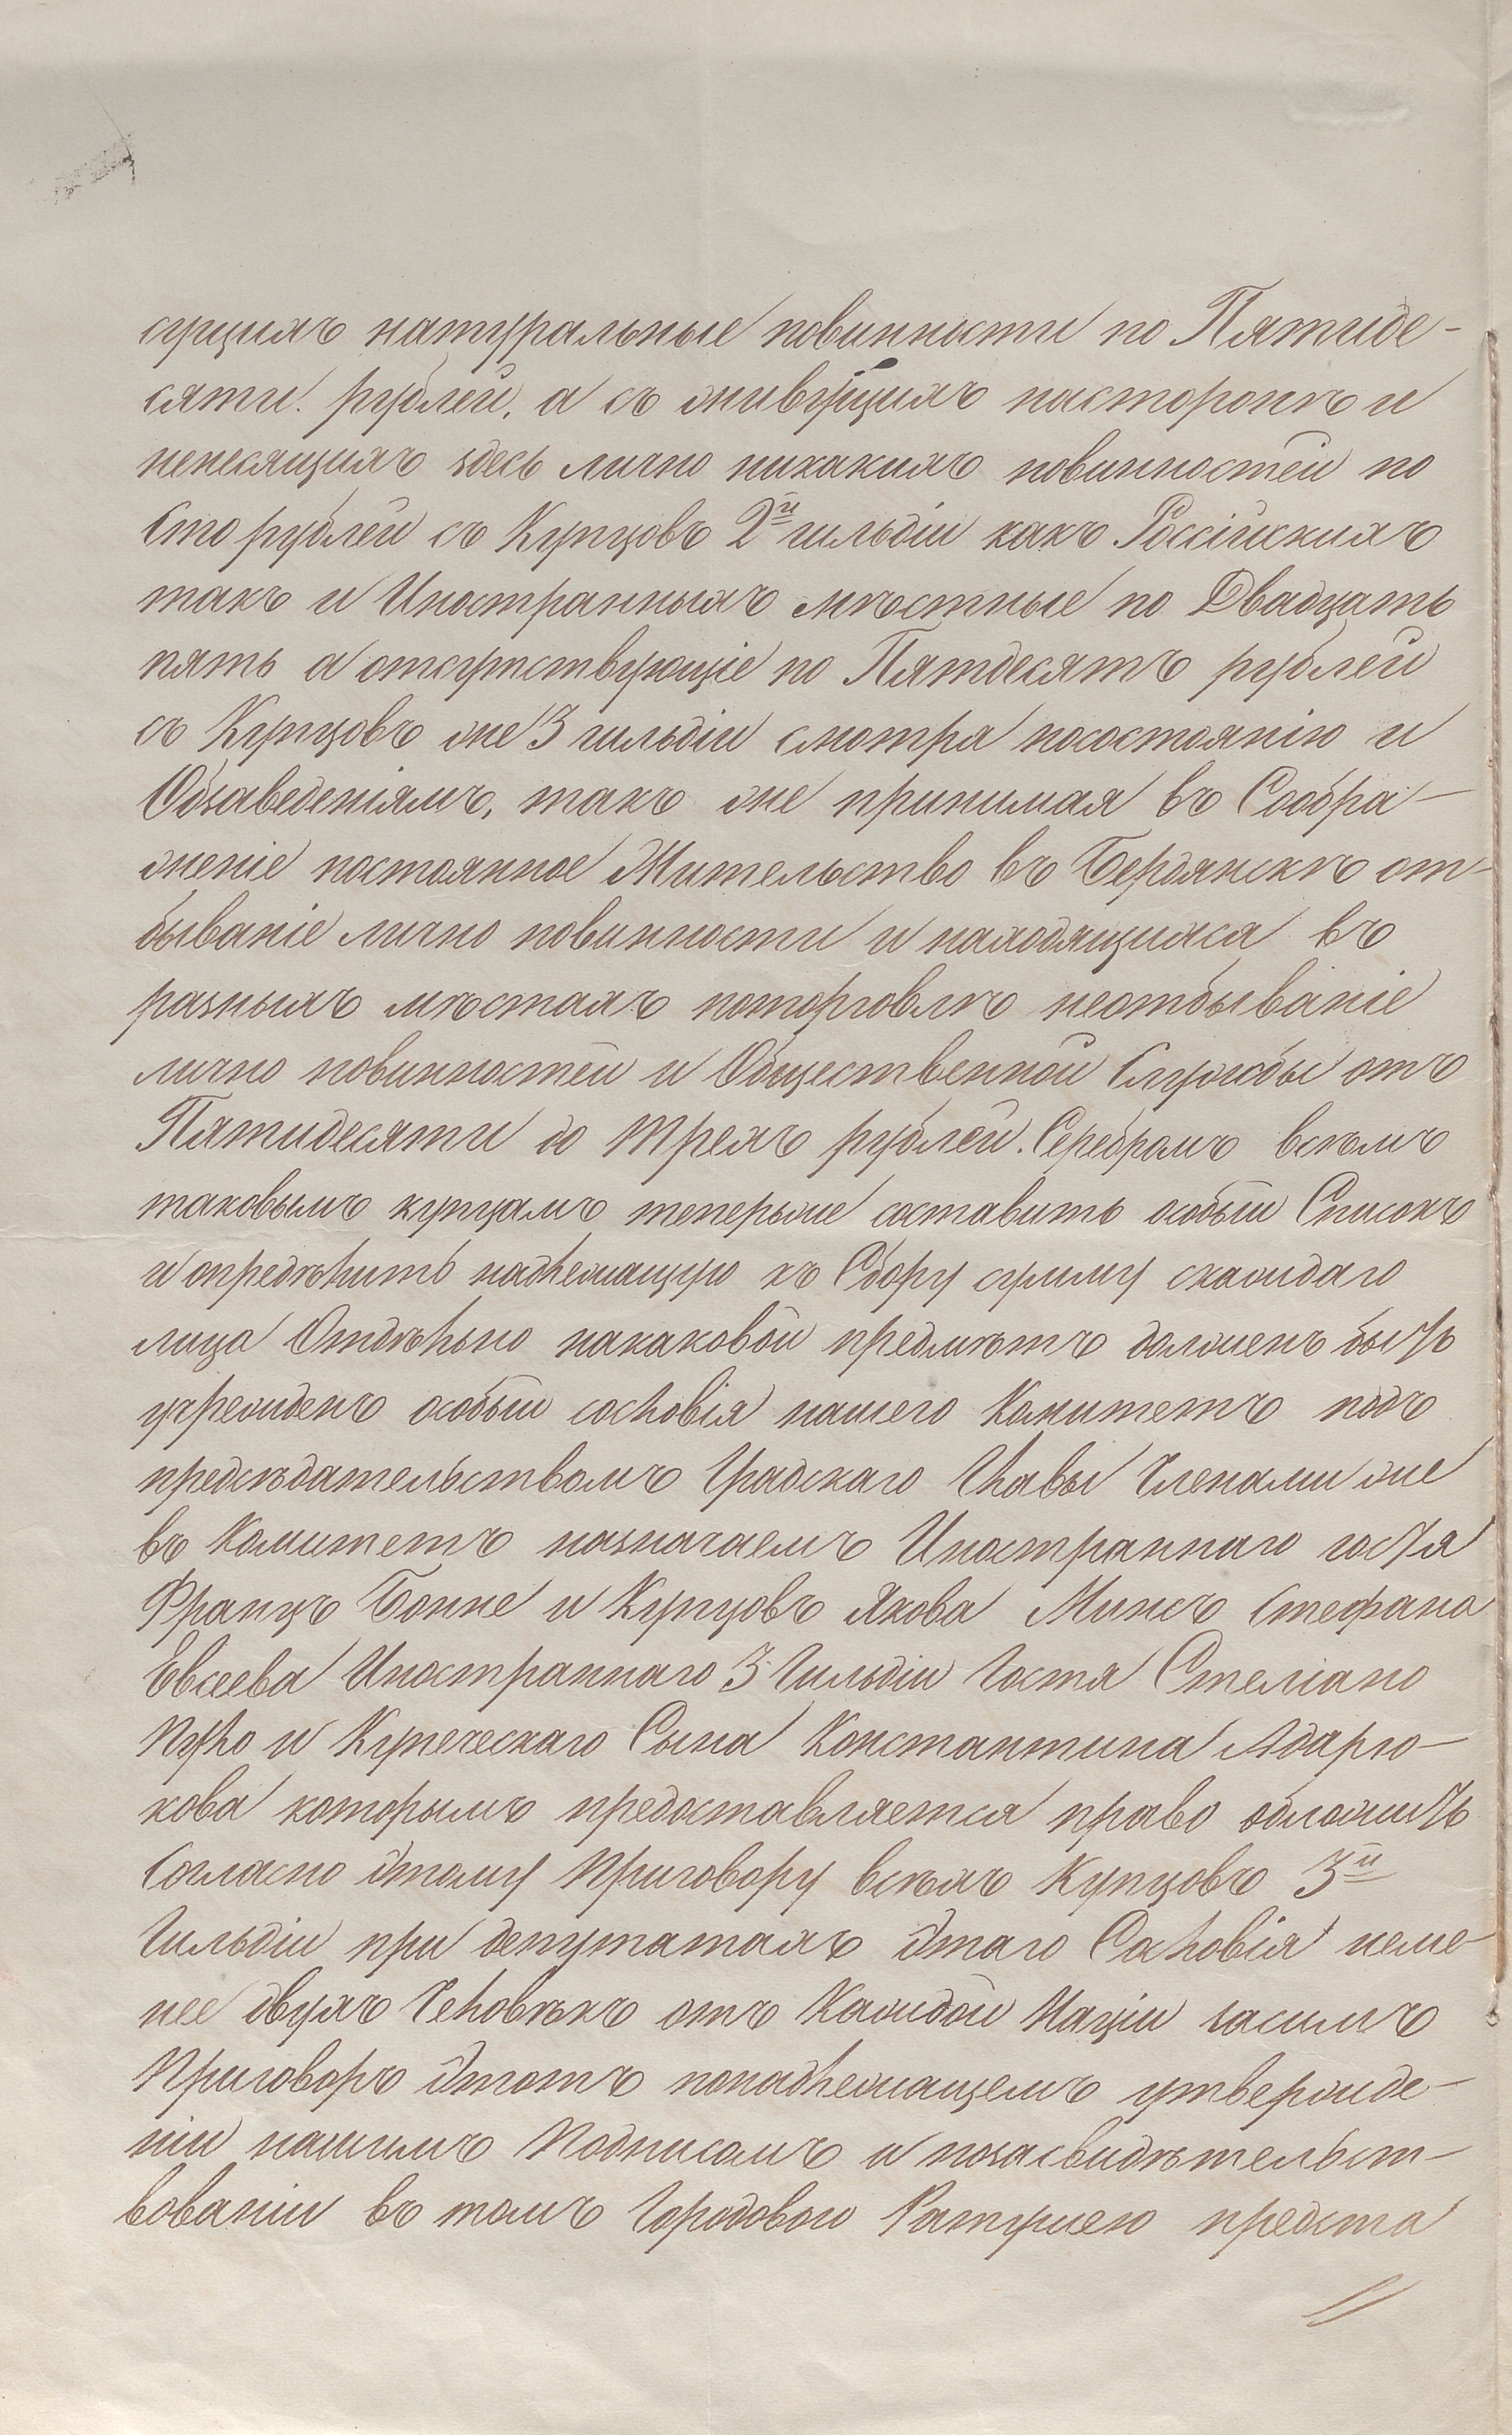 сущихъ натуральные повинности по Пятиде-
сяти. рублей, а съ живущихъ насторонѣ и
ненесящихъ здесь лично никакихъ повинностей по
Сто рублей съ Купцовъ 2й гильдіи какъ Россійскихъ
такъ и Иностранныхъ мѣстные по Двадцать
пять а отсутствующіе по Пятдесятъ рублей
съ Купцовъ же 3 гильдіи смотря посостоянію и
Обзаведеніямъ, такъ же принимая въ Сообра-
женіе постоянное Жительство въ Бердянскѣ от-
бываніе лично повинности и находящихся въ
разныхъ мѣстахъ поторговлѣ неотбываніе
лично повинностей и Общественной Службы отъ
Пятидесяти до трехъ рублей. Серебромъ всѣмъ
таковымъ купцамъ теперьже составить особый Списокъ
и опредѣлить надлежащую къ Сбору сумму скаждаго
лица Отдѣльно накаковой предмѣтъ долженъ быть
учрежденъ особый сословія нашего Комитетъ подъ
предсѣдательствомъ Градскаго Главы Членами же
въ Комитетъ назначаемъ Иностраннаго гостя
Францъ Бонне и Купцовъ Якова Минсъ Стефана
Евсеева Иностраннаго 3 Гильдіи Гостя Стеліано
Пулло и Купеческаго Сына Константина Адарю-
кова которымъ предоставляется право обложить
Согласно этому Приговору всѣхъ Купцовъ 3й
Гильдіи при депутатахъ этаго Сословія неме-
нее двухъ Человѣкъ отъ Каждой Націи засимъ
Приговоръ этотъ понадлежащемъ утвержде-
ніи нашимъ Подписомъ и позасвидѣтельст-
вованіи въ томъ Городовою Ратушею предста